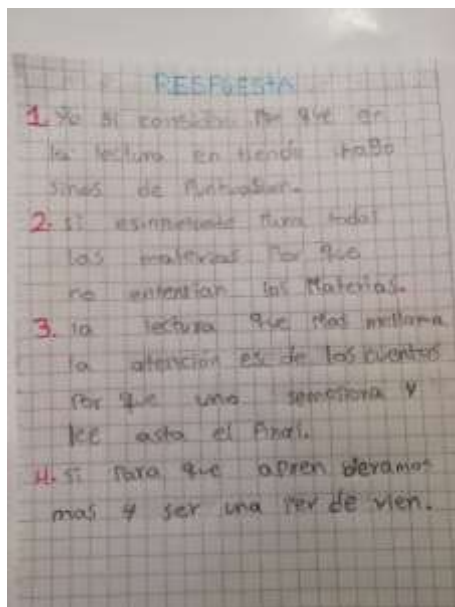 RESPUESTA
1. Yo si considero Por que en
la lectura en tiendo
sinos de Puntuasion.
2. si esinportante Para todas
las materias Por que
no entenrian las Materias.
3. la lectura que Mas mellama
la atención es de los cuentos
Por que uno semosiona y
lee asta el Final.
4. si Para que apren deramos
mas y ser una Per de vien.